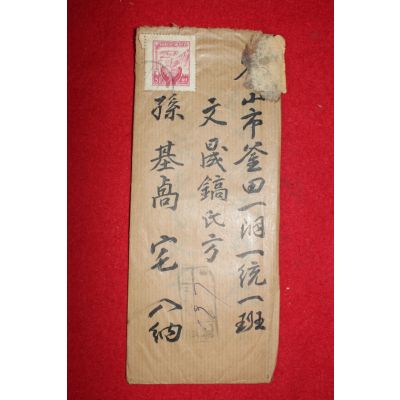 山市釜田一洞一統一班
文晟鎬氏方
孫基卨 宅 入納